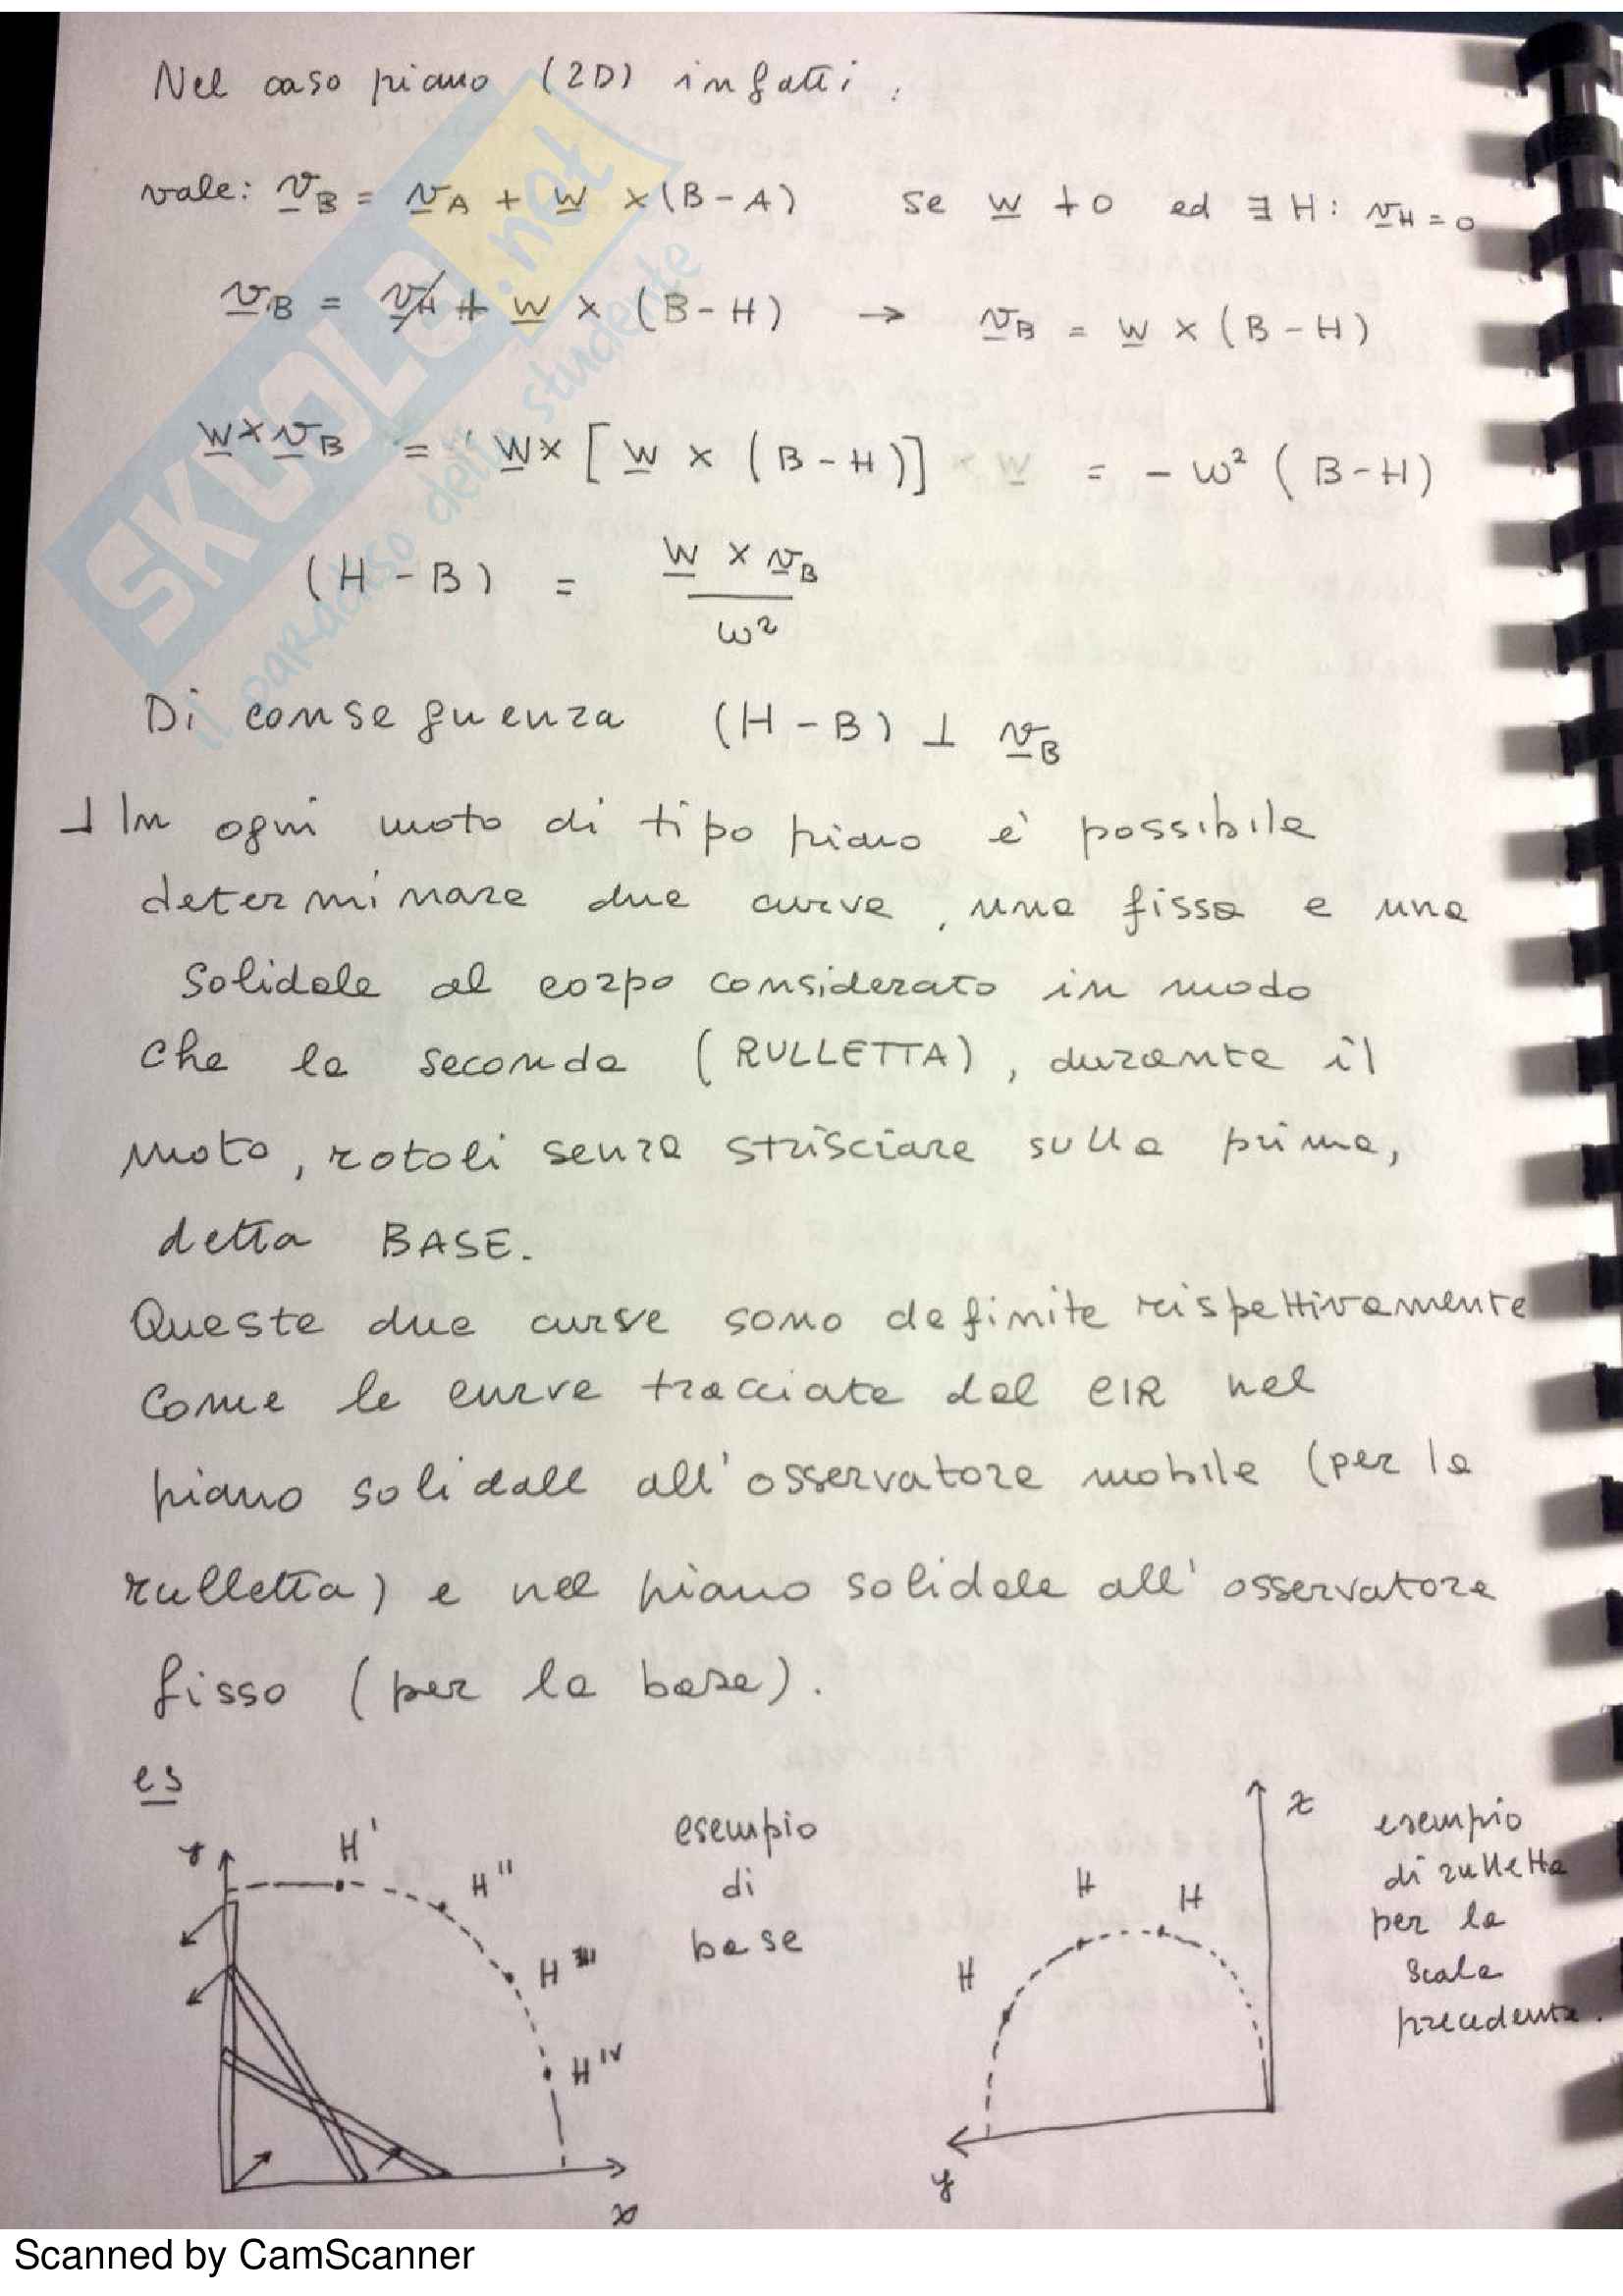 Nel caso piano (2D) infatti:
vale: v_B = v_A + w × (B-A) se w ≠ 0 ed ∃ H: v_H = 0
v_B = v_H + w × (B-H) → v_B = w × (B-H)
w × v_B = w × [w × (B-H)] = - ω² (B-H)
(H-B) = w × v_B / ω²
Di conseguenza (H-B) ⊥ v_B
In ogni moto di tipo piano è possibile
determinare due curve, una fissa e una
solidale al corpo considerato in modo
che la seconda (RULLETTA), durante il
moto, rotoli senza strisciare sulla prima,
detta BASE.
Queste due curve sono definite rispettivamente
come le curve tracciate dal CIR nel
piano solidale all'osservatore mobile (per la
rulletta) e nel piano solidale all'osservatore
fisso (per la base).
es
H' H'' H''' H^IV
x
esempio
di
base
H H H
z
y
esempio
di rulletta
per la
scala
precedente.
SKUOLA.net
il paradiso dello studente
Scanned by CamScanner